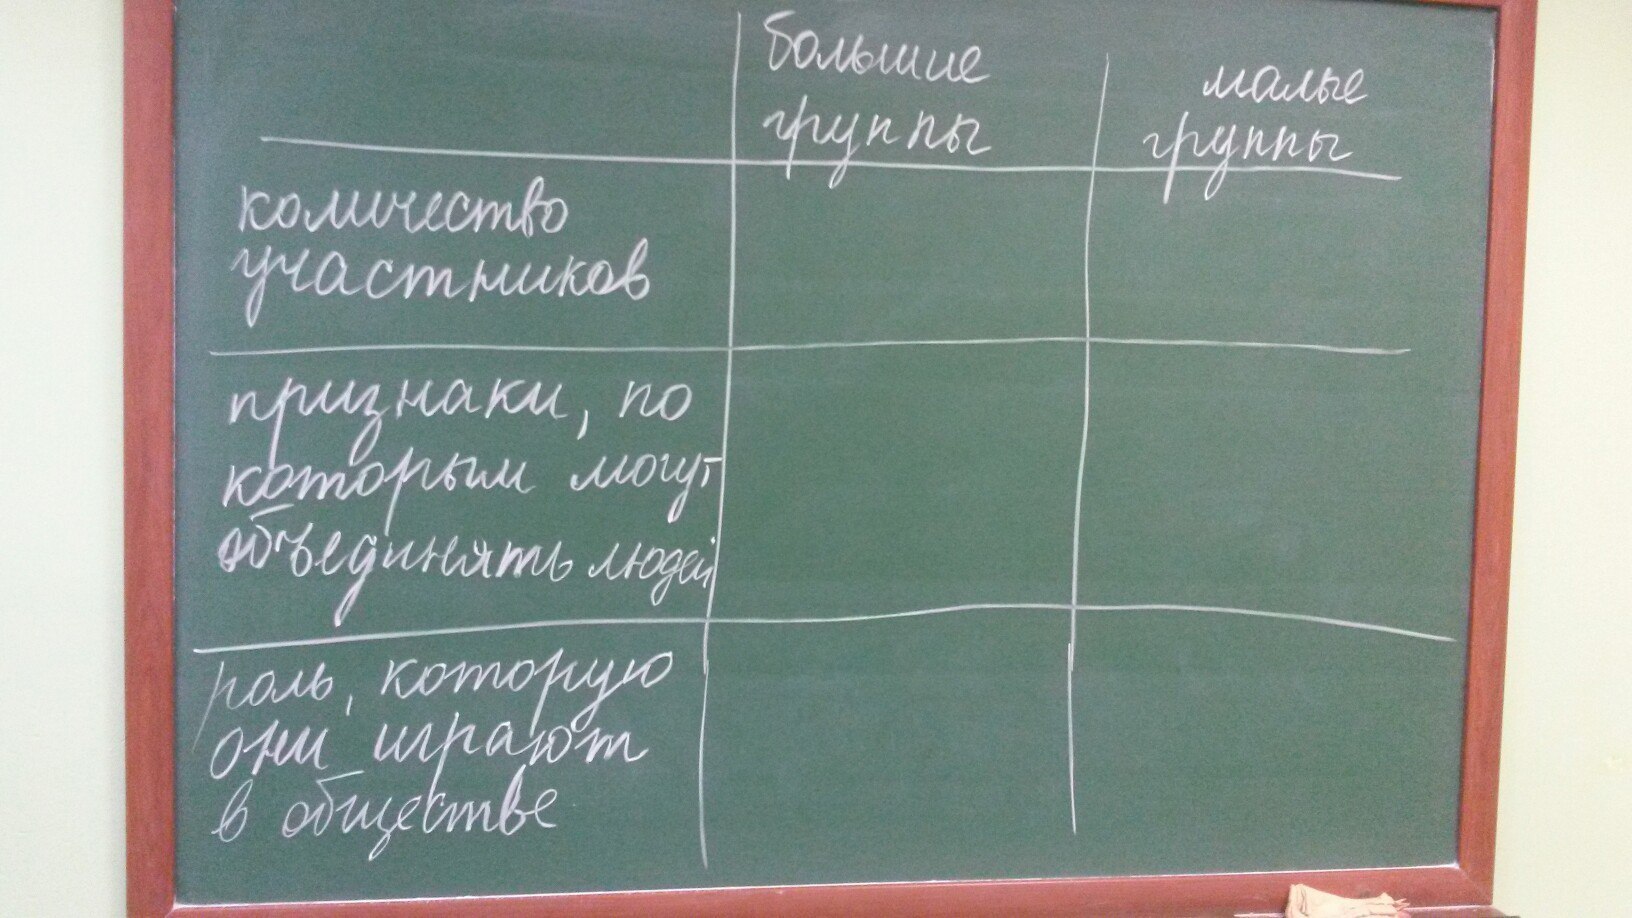 большие
группы
малые
группы
количество
участников
признаки, по
которым могут
объединять людей
роль, которую
они играют
в обществе